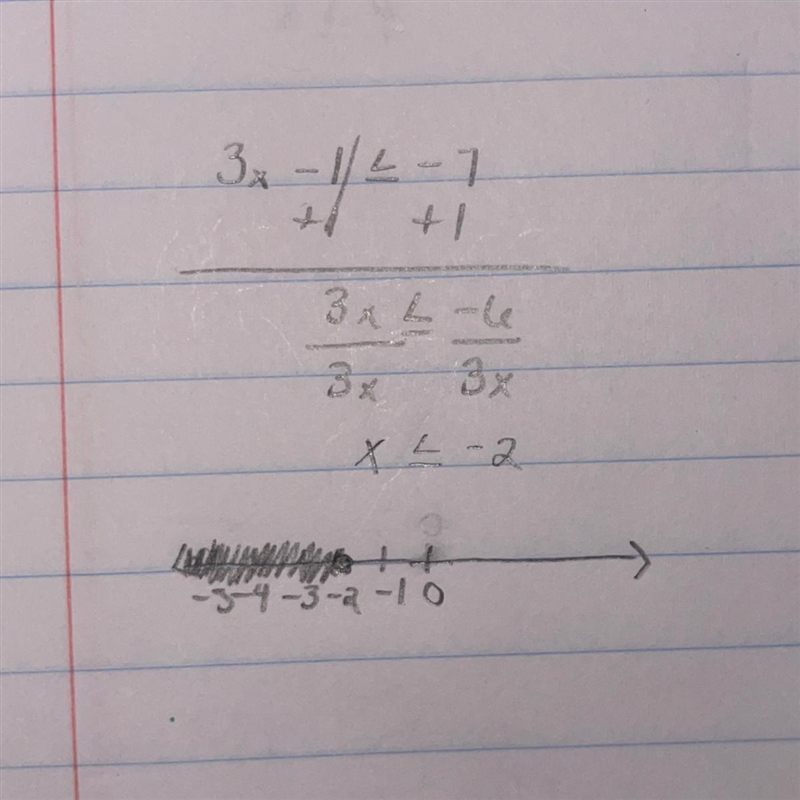 3x - 1 ≤ - 7
+1 +1
3x ≤ -6
3x 3x
x ≤ -2
-5 -4 -3 -2 -1 0